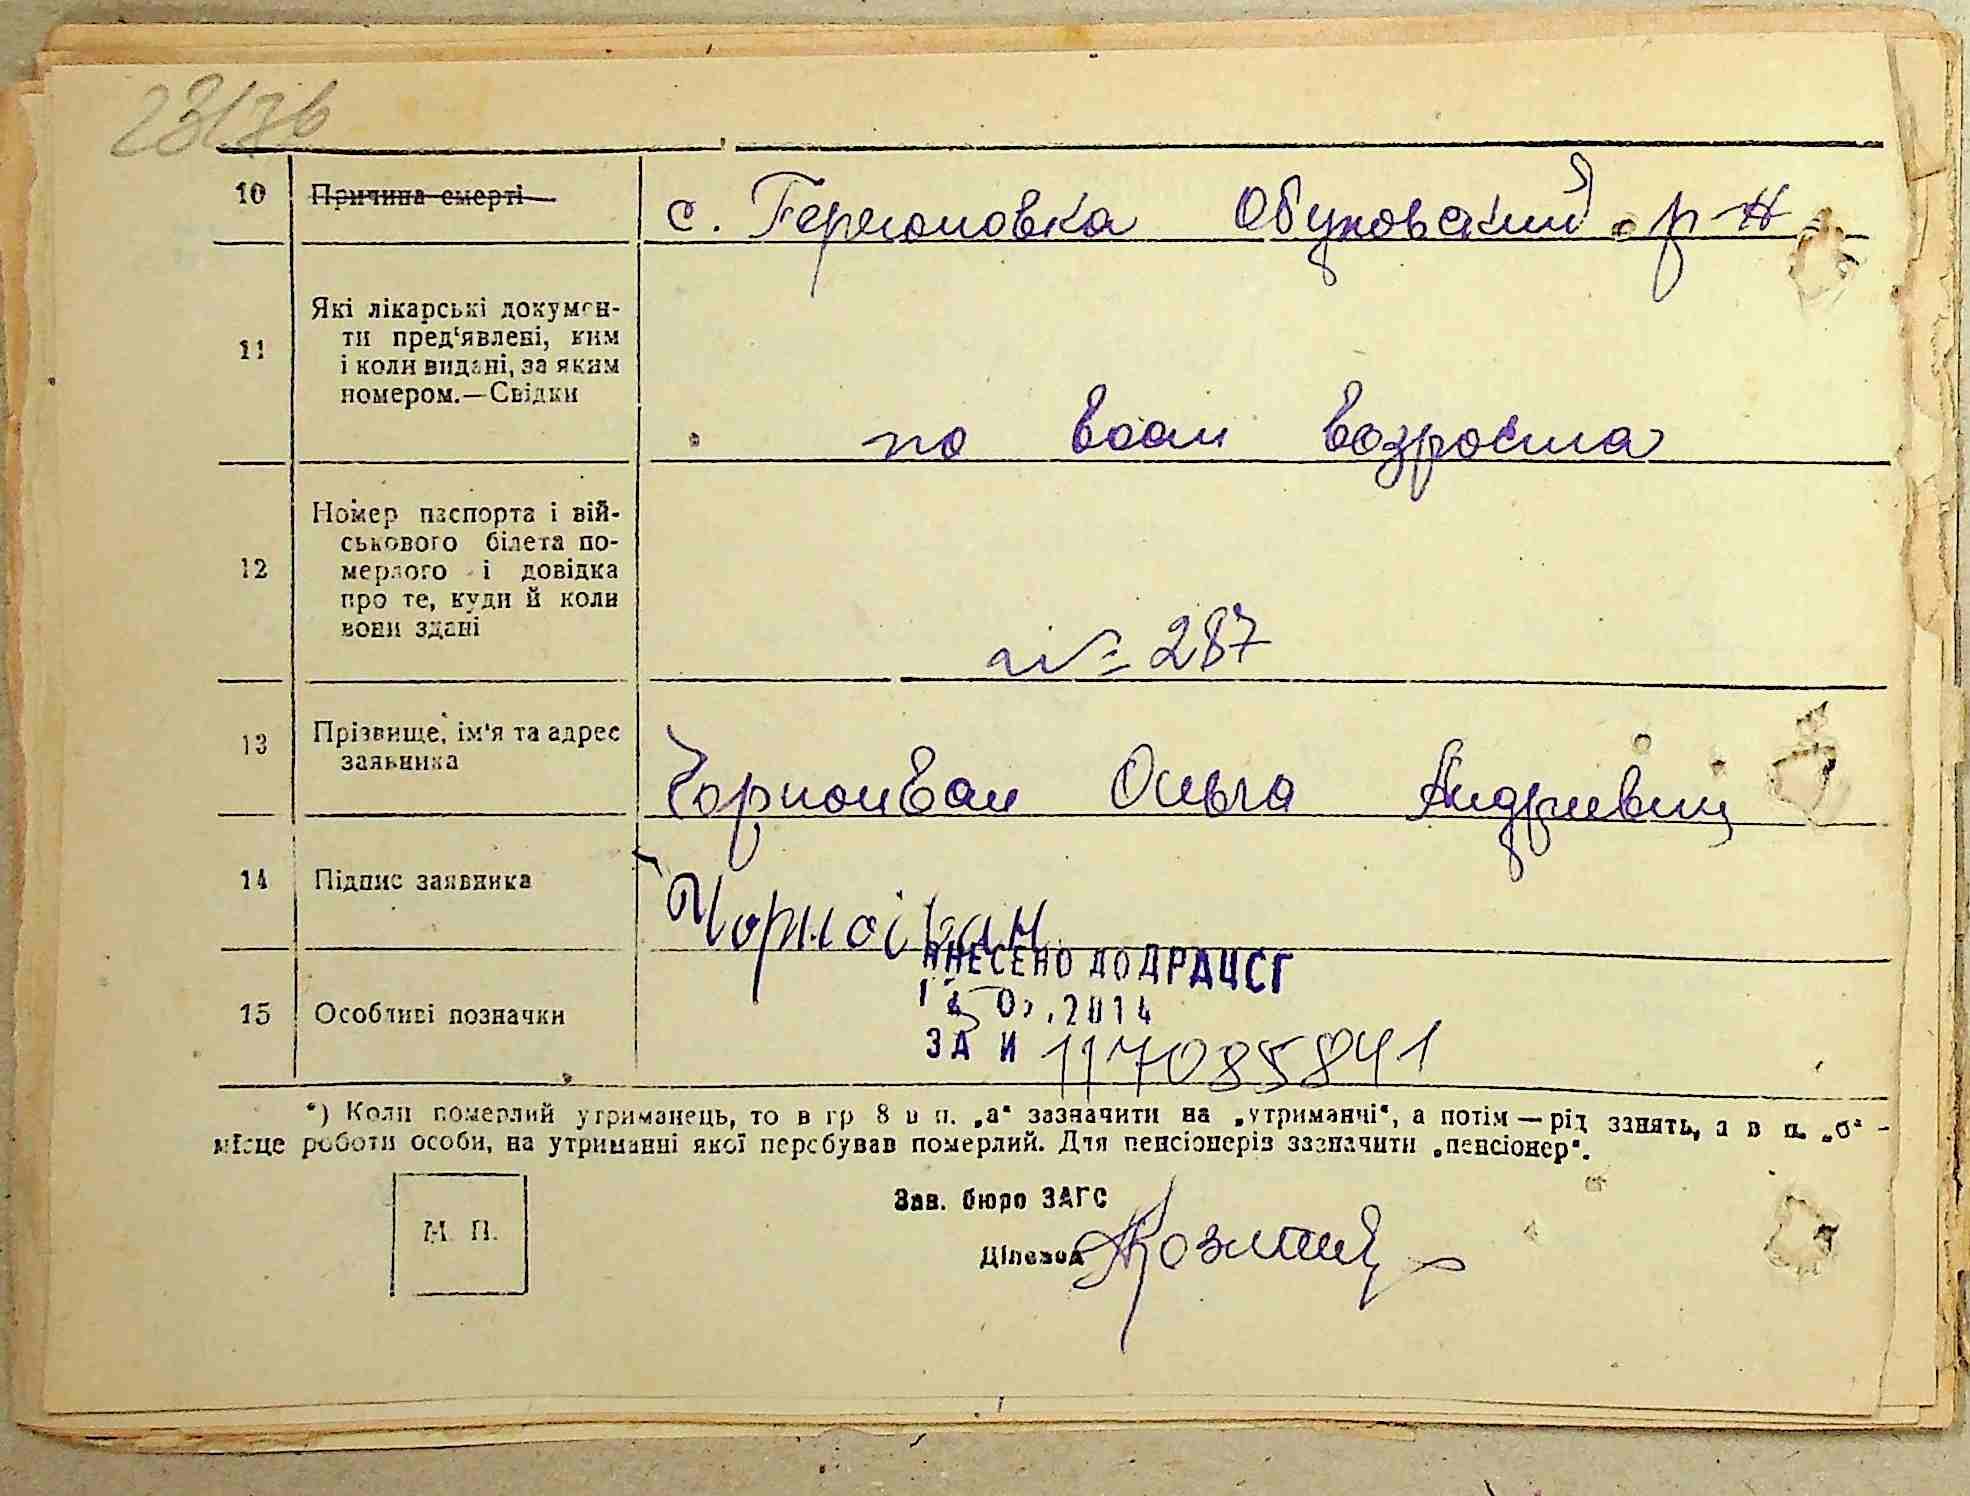 10 Причина смерті с. Германовка Обуховский р-н
11 Які лікарські докумен-
ти пред‘явлені, ким
і коли видані, за яким
номером.—Свідки
по воли возроста
12 Номер паспорта і вій-
ськового білета по-
мерлого і довідка
про те, куди й коли
вони здані
№ 287
13 Прізвище, ім‘я та адрес
заявника
Чорноиван Ольга
14 Підпис заявника Чорноіван
ВНЕСЕНО ДО ДРАЦСГ
15 Особливі позначки
2014
ЗА И 117085841
*) Коли померлий утриманець, то в гр 8 в п. „а“ зазначити на „утриманчі“, а потім — рід занять, а в п. „б“ -
місце роботи особи, на утриманні якої перебував померлий. Для пенсіонерів зазначити „пенсіонер“.
Зав. бюро ЗАГС
М. П.
Діловод